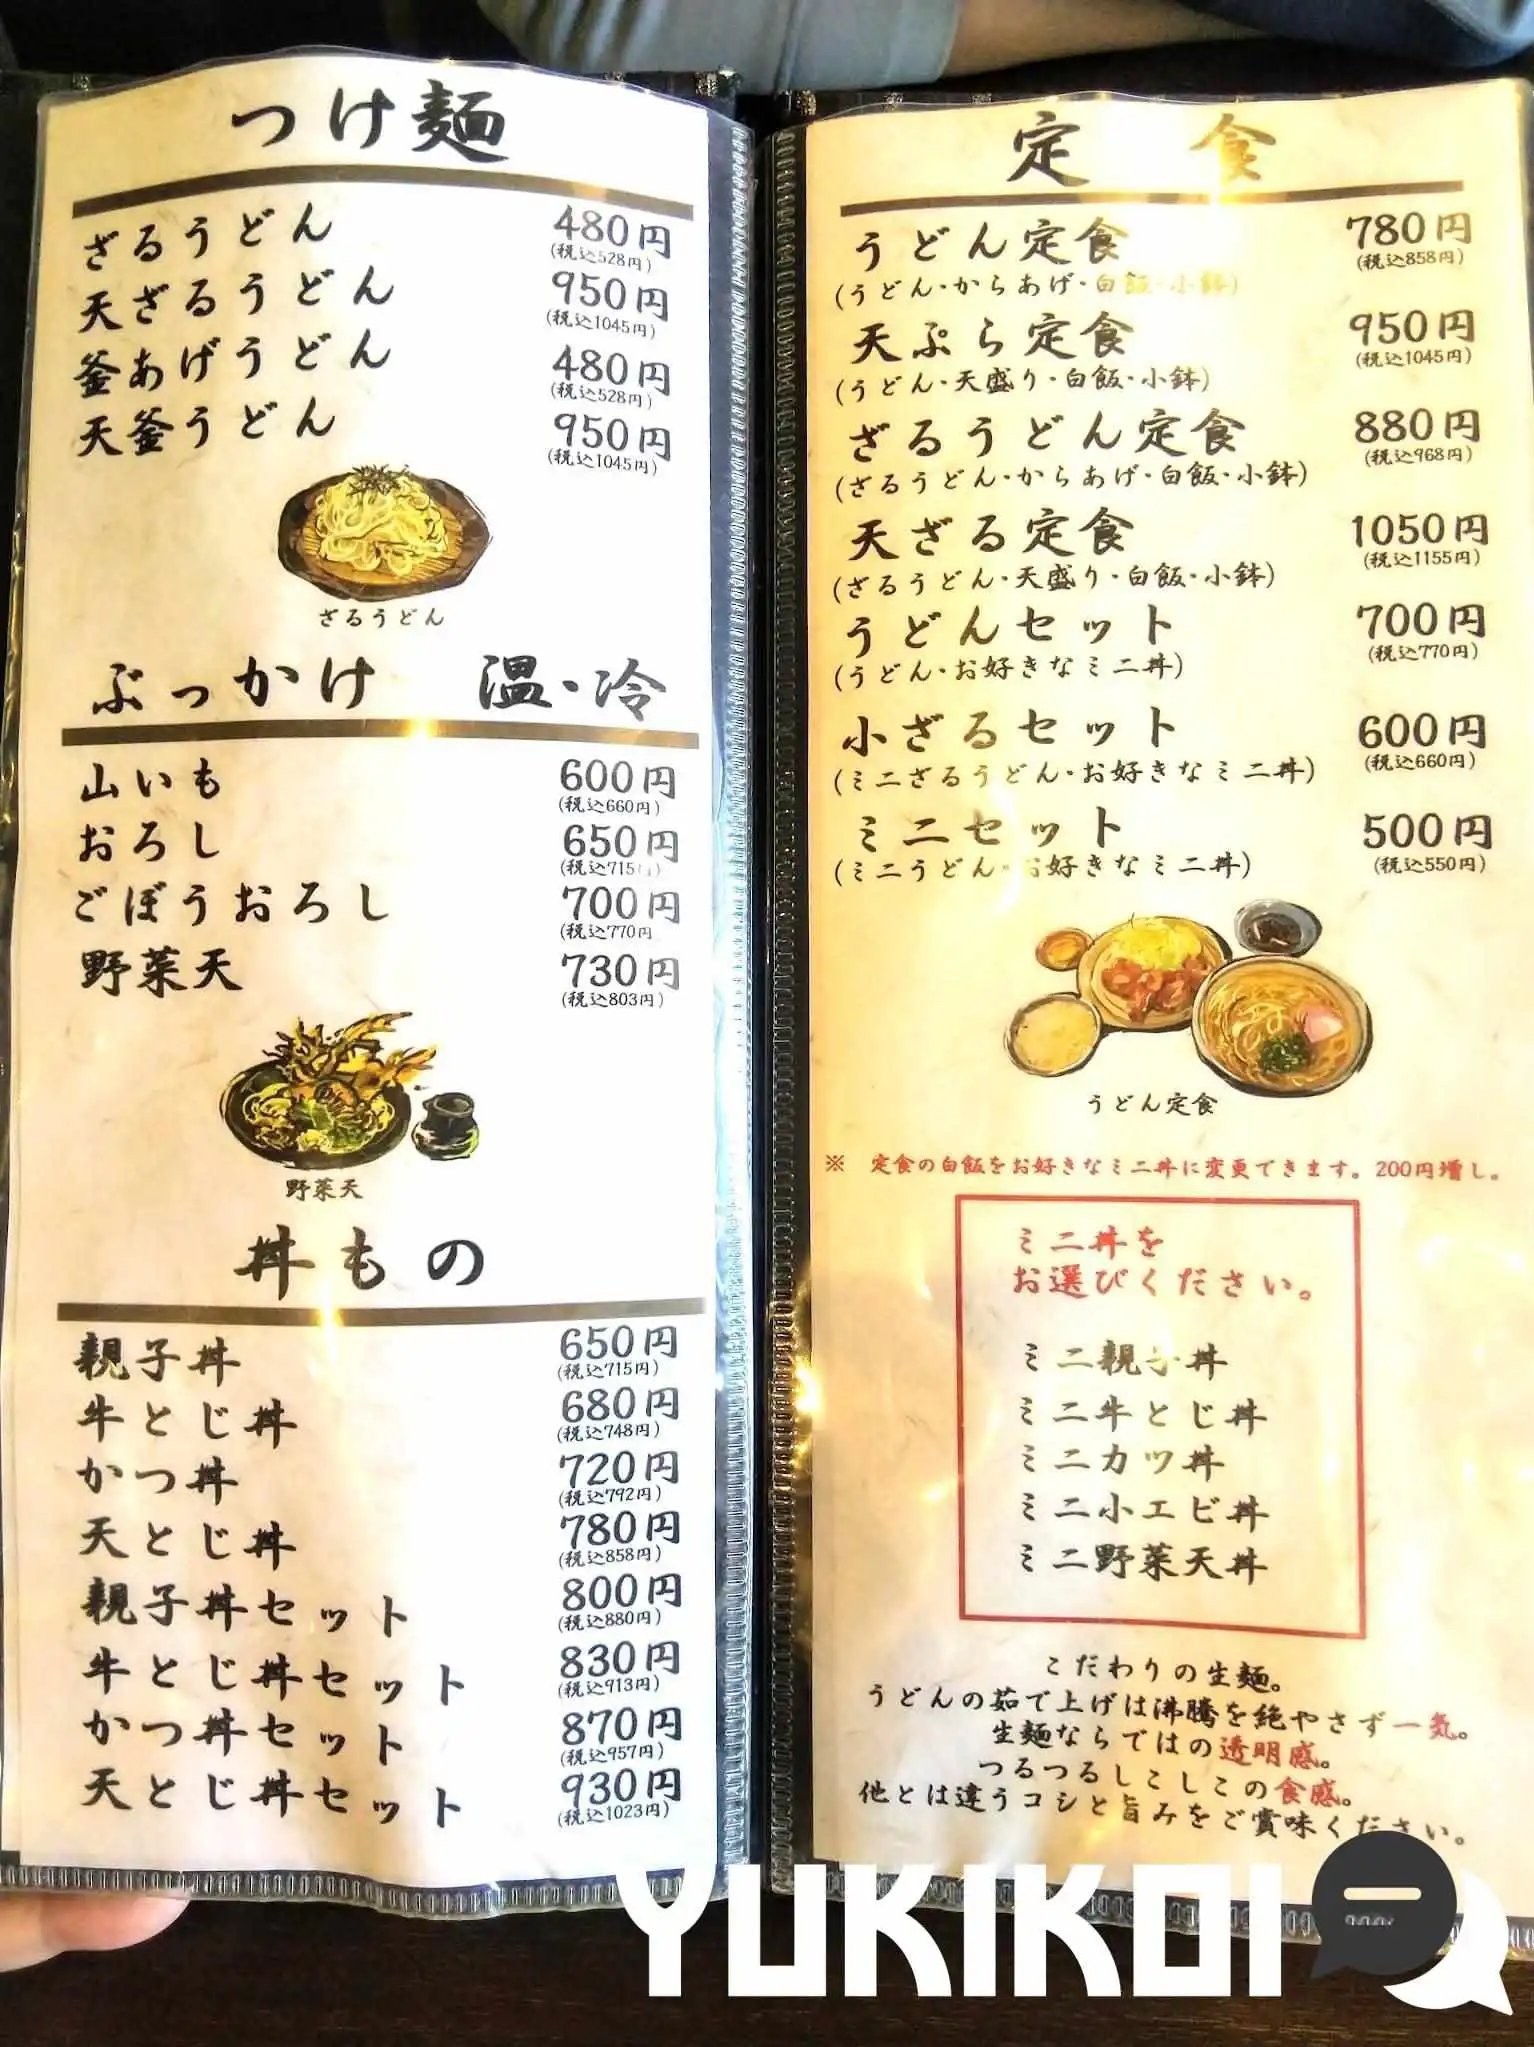 つけ麺
ざるうどん 480円
(税込528円)
天ざるうどん 950円
(税込1045円)
釜あげうどん 480円
(税込528円)
天釜うどん 950円
(税込1045円)
ざるうどん
ぶっかけ 温・冷
山いも 600円
(税込660円)
おろし 650円
(税込715円)
ごぼうおろし 700円
(税込770円
野菜天 730円
(税込803円)
野菜天
丼もの
親子丼 650円
(税込715円)
牛とじ丼 680円
(税込748円)
かつ丼 720円
(税込792円)
天とじ丼 780円
(税込858円)
親子丼セット 800円
(税込880円)
牛とじ丼セット 830円
(税込913円)
かつ丼セット 870円
(税込957円)
天とじ丼セット 930円
(税込1023円)
定食
うどん定食 780円
(税込858円)
(うどん・からあげ・白飯・小鉢)
天ぷら定食 950円
(税込1045円)
(うどん・天盛り・白飯・小鉢)
ざるうどん定食 880円
(税込968円)
(ざるうどん・からあげ・白飯・小鉢)
天ざる定食 1050円
(税込1155円)
(ざるうどん・天盛り・白飯・小鉢)
うどんセット 700円
(税込770円)
(うどん・お好きなミニ丼)
小ざるセット 600円
(税込660円)
(ミニざるうどん・お好きなミニ丼)
ミニセット 500円
(税込550円)
(ミニうどん・お好きなミニ丼)
うどん定食
※ 定食の白飯をお好きなミニ丼に変更できます。200円増し。
ミニ丼を
お選びください。
ミニ親子丼
ミニ牛とじ丼
ミニカツ丼
ミニ小エビ丼
ミニ野菜天丼
こだわりの生麺。
うどんの茹で上げは沸騰を絶やさず一気。
生麺ならではの透明感。
つるつるしこしこの食感。
他とは違うコシと旨みをご賞味ください。
YUKIKOI